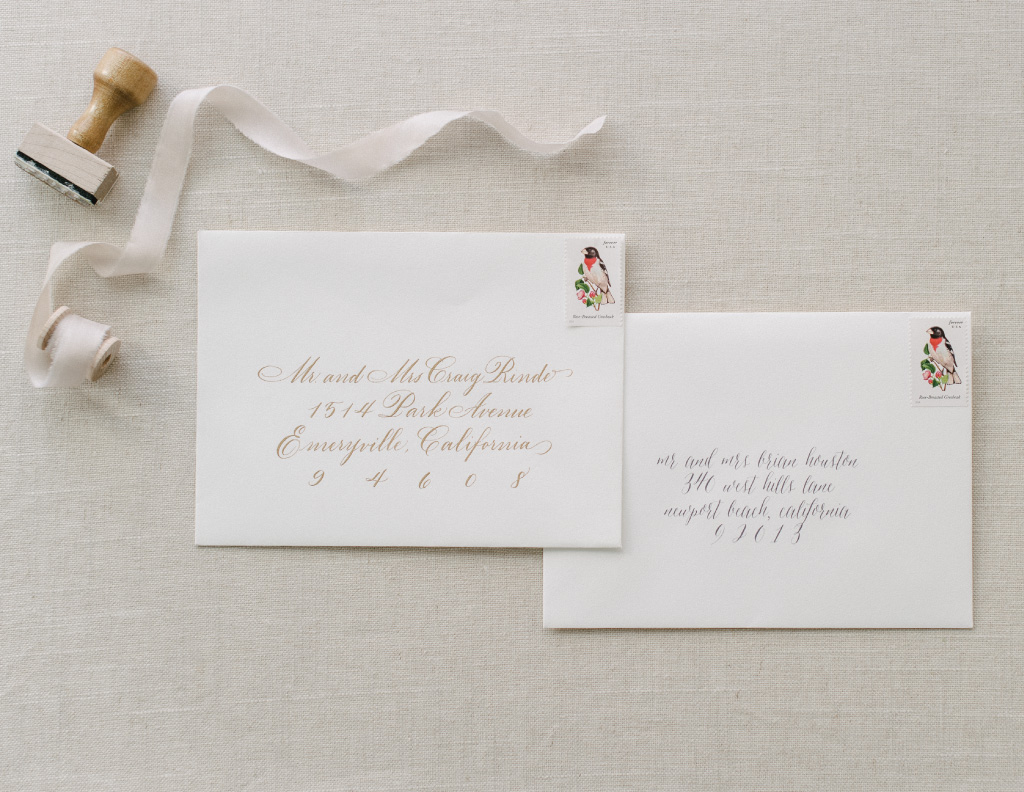 forever
USA
Rose-Breasted Grosbeak
Mr. and Mrs Craig Rinde
1514 Park Avenue
Emeryville, California
9 4 6 0 8
forever
USA
Rose-Breasted Grosbeak
mr and mrs brian houston
340 west hills lane
newport beach, california
9 2 6 1 3